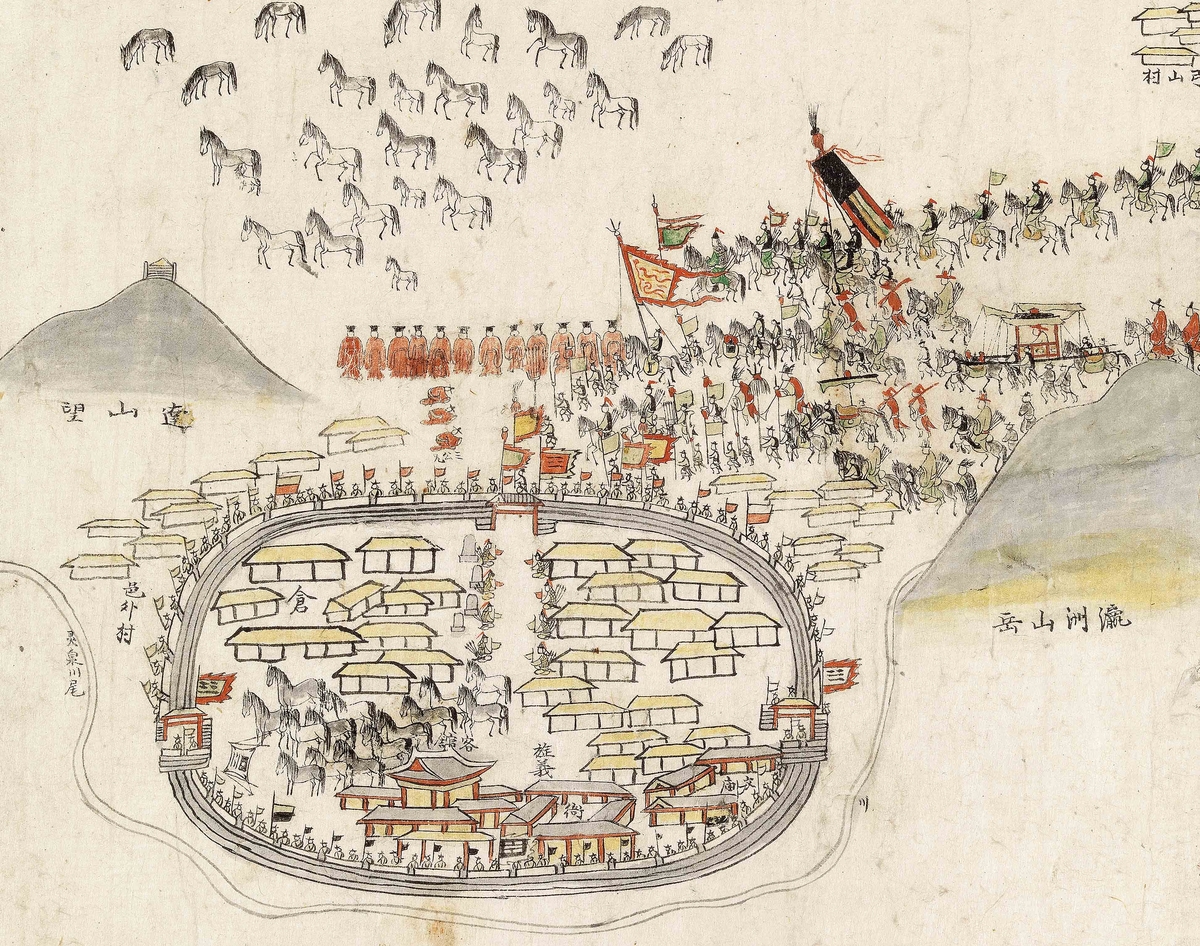 山村
達山望
瀛洲山岳
倉
邑朴村
灵泉川尾
客舘
旌義
衙
文庙
川